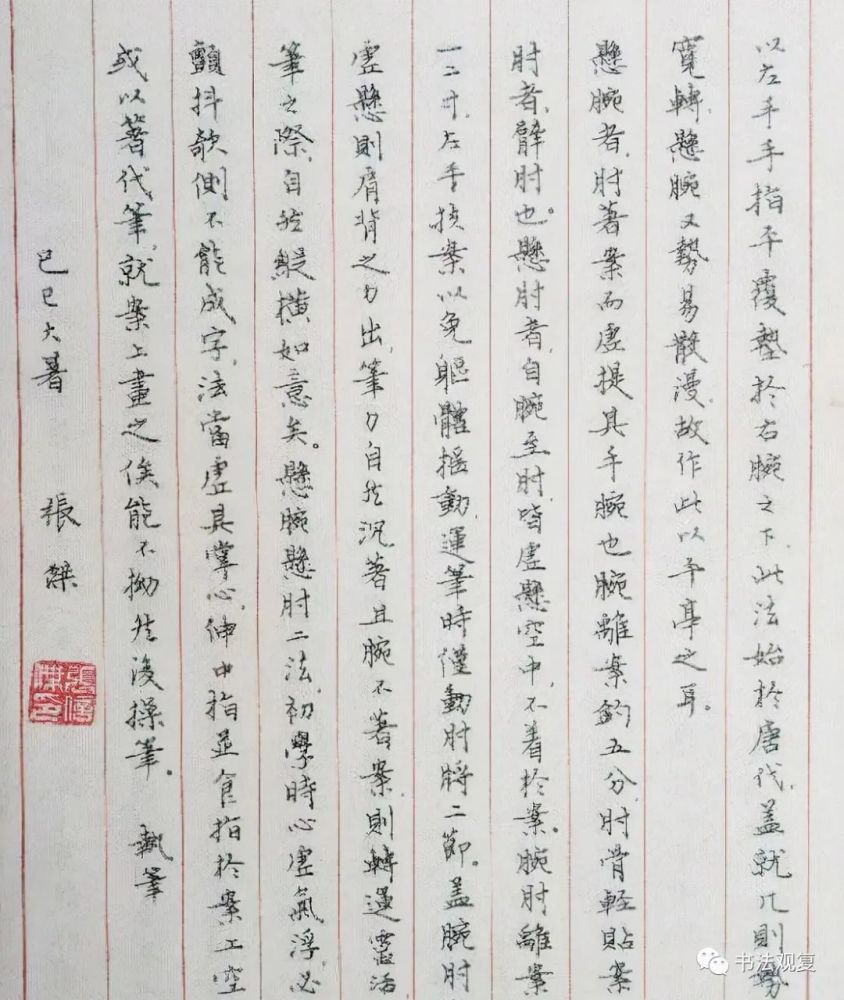 以左手手指平覆墊於右腕之下，此法始於唐代，盖就几則勢
寬轉，懸腕又勢易散漫，故作此以平亭之耳。
懸腕者，肘著案而虛提其手腕也腕離案約五分，肘骨輕貼案
肘者，臂肘也。懸肘者，自腕至肘，皆虛懸空中，不着於案。腕肘離案
一二寸，左手按案以免軀體摇動，運筆時僅動肘將二節。盖腕肘
虛懸則肩背之力出，筆力自然沉著且腕不著案，則轉運靈活
筆之際，自然縱横如意矣。懸腕懸肘二法，初學時心虛氣浮，必
顫抖欹側，不能成字，法當虛其掌心，伸中指並食指於案上空
或以著代筆，就案上畫之俟能不拗然後操筆。 執筆
己巳大暑 張傑
張傑印
书法观复